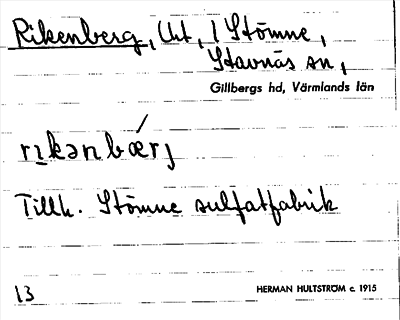 Rikenberg, Uht, / Stömne,
Stavnäs sn,
Gillbergs hd, Värmlands län
rɪkənbærj
Tillh. Stömne sulfatfabrik
13
HERMAN HULTSTRÖM c. 1915